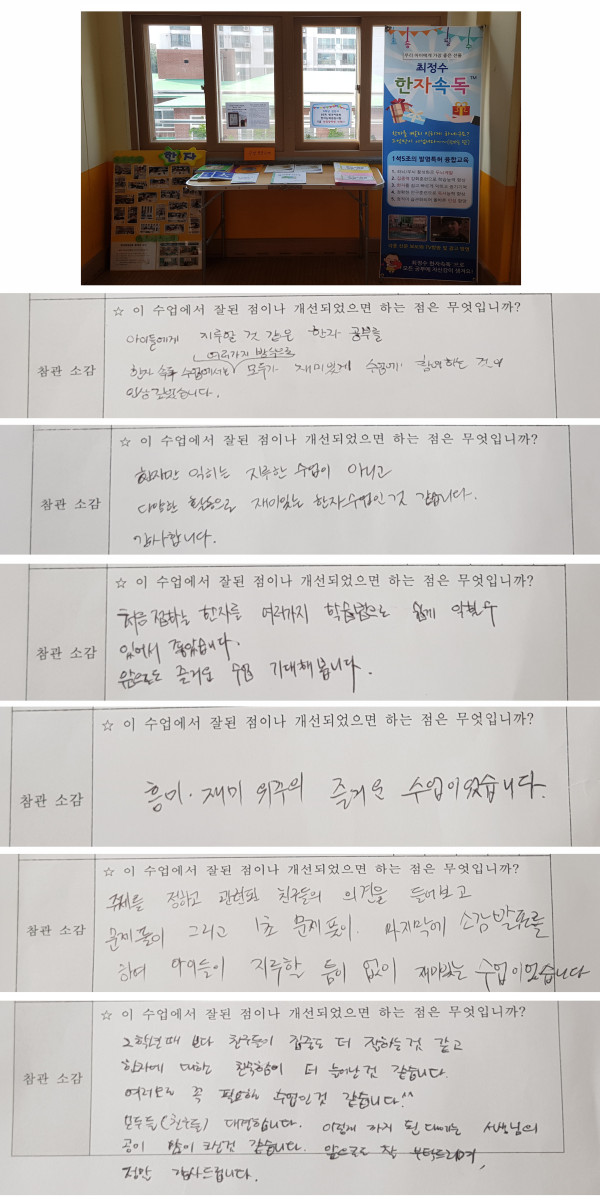 최정수
한자속독™
1석5조의 발명특허 융합교육
한자
☆ 이 수업에서 잘된 점이나 개선되었으면 하는 점은 무엇입니까?
참관 소감
아이들에게 지루할 것 같은 한자 공부를
여러가지 방식으로
한자 속독 수업에서는 모두가 재미있게 수업에 참여하는 것이
인상깊었습니다.
☆ 이 수업에서 잘된 점이나 개선되었으면 하는 점은 무엇입니까?
참관 소감
한자만 익히는 지루한 수업이 아니고
다양한 활동으로 재미있는 한자수업인 것 같습니다.
감사합니다.
☆ 이 수업에서 잘된 점이나 개선되었으면 하는 점은 무엇입니까?
참관 소감
처음 접하는 한자를 여러가지 학습법으로 쉽게 익힐 수
있어서 좋았습니다.
앞으로도 즐거운 수업 기대해봅니다.
☆ 이 수업에서 잘된 점이나 개선되었으면 하는 점은 무엇입니까?
참관 소감
흥미·재미 위주의 즐거운 수업이었습니다.
☆ 이 수업에서 잘된 점이나 개선되었으면 하는 점은 무엇입니까?
참관 소감
주제를 정하고 관련된 친구들의 의견을 들어보고
문제풀이 그리고 1초 문제풀이. 마지막에 소감발표를
하며 아이들이 지루할 틈이 없이 재미있는 수업이었습니다
☆ 이 수업에서 잘된 점이나 개선되었으면 하는 점은 무엇입니까?
참관 소감
2학년때 보다 친구들이 집중도 더 잘하는 것 같고
한자에 대한 친숙함이 더 늘어난 것 같습니다.
여러모로 꼭 필요한 수업인 것 같습니다.^^
모두들(친구들) 대견합니다. 이렇게 하기 된 데에는 선생님의
공이 많이 크신것 같습니다. 앞으로도 잘 부탁드리며,
정말 감사드립니다.